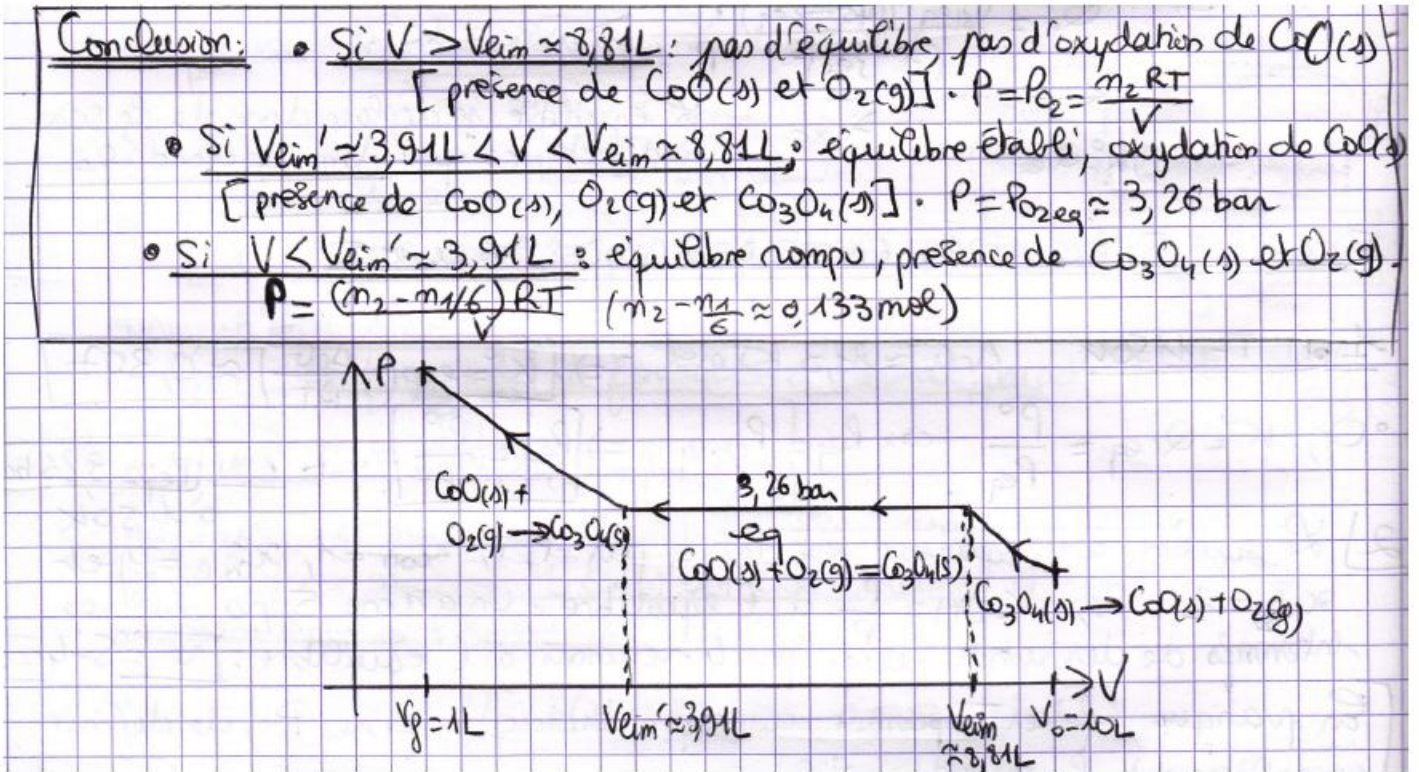 Conclusion: • Si V > Veim ≈ 8,81L : pas d'équilibre, pas d'oxydation de CoO(s)
[présence de CoO(s) et O2(g)]. P = PO2 = n2RT/V
• Si Veim' ≈ 3,91L < V < Veim ≈ 8,81L : équilibre établi, oxydation de CoO(s)
[présence de CoO(s), O2(g) et Co3O4(s)]. P = PO2eq ≈ 3,26 bar
• Si V < Veim' ≈ 3,91L : équilibre rompu, présence de Co3O4(s) et O2(g).
P = (n2 - n1/6)RT/V (n2 - n1/6 ≈ 0,133 mol)
P
3,26 bar
CoO(s) +
O2(g) → Co3O4(s)
eq
CoO(s) + O2(g) = Co3O4(s)
Co3O4(s) → CoO(s) + O2(g)
V
Vf = 1L
Veim' ≈ 3,91L
Veim
≈ 8,81L
V0 = 10L